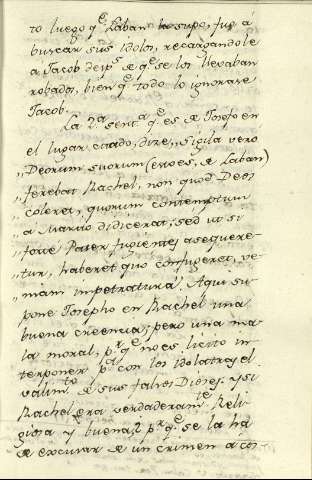 to luego qe. Laban lo supe, fue á
buscar sus idolos, recargandole
a Jacob desps. de qe. se los llevaban
robados, bien qe. todo lo ignorase
Jacob.
La 2a. senta. qe. es de Josefo en
el lugar citado, dice, Sigila vero
„Deorum suorum (esto es, de Laban)
„ferebat Rachel, non quod Deos
„coleret, quorum contemptum
„a Marito didicerat; sed ut si
„forte Pater fugientes assequere-
„tur, haberet quo confugeret, ve-
„niam impetratura. Aqui su-
pone Josepho en Rachel una
buena creencia; pero una ma-
la moral, pr. qe. no es licito in-
terponer pa. con los idolatras el
valimto. de sus falsos Dioses. y si
Rachel era verdaderamte. Reli-
giosa y buena, pr. qe. se la há
de excusar de un crimen á cos-